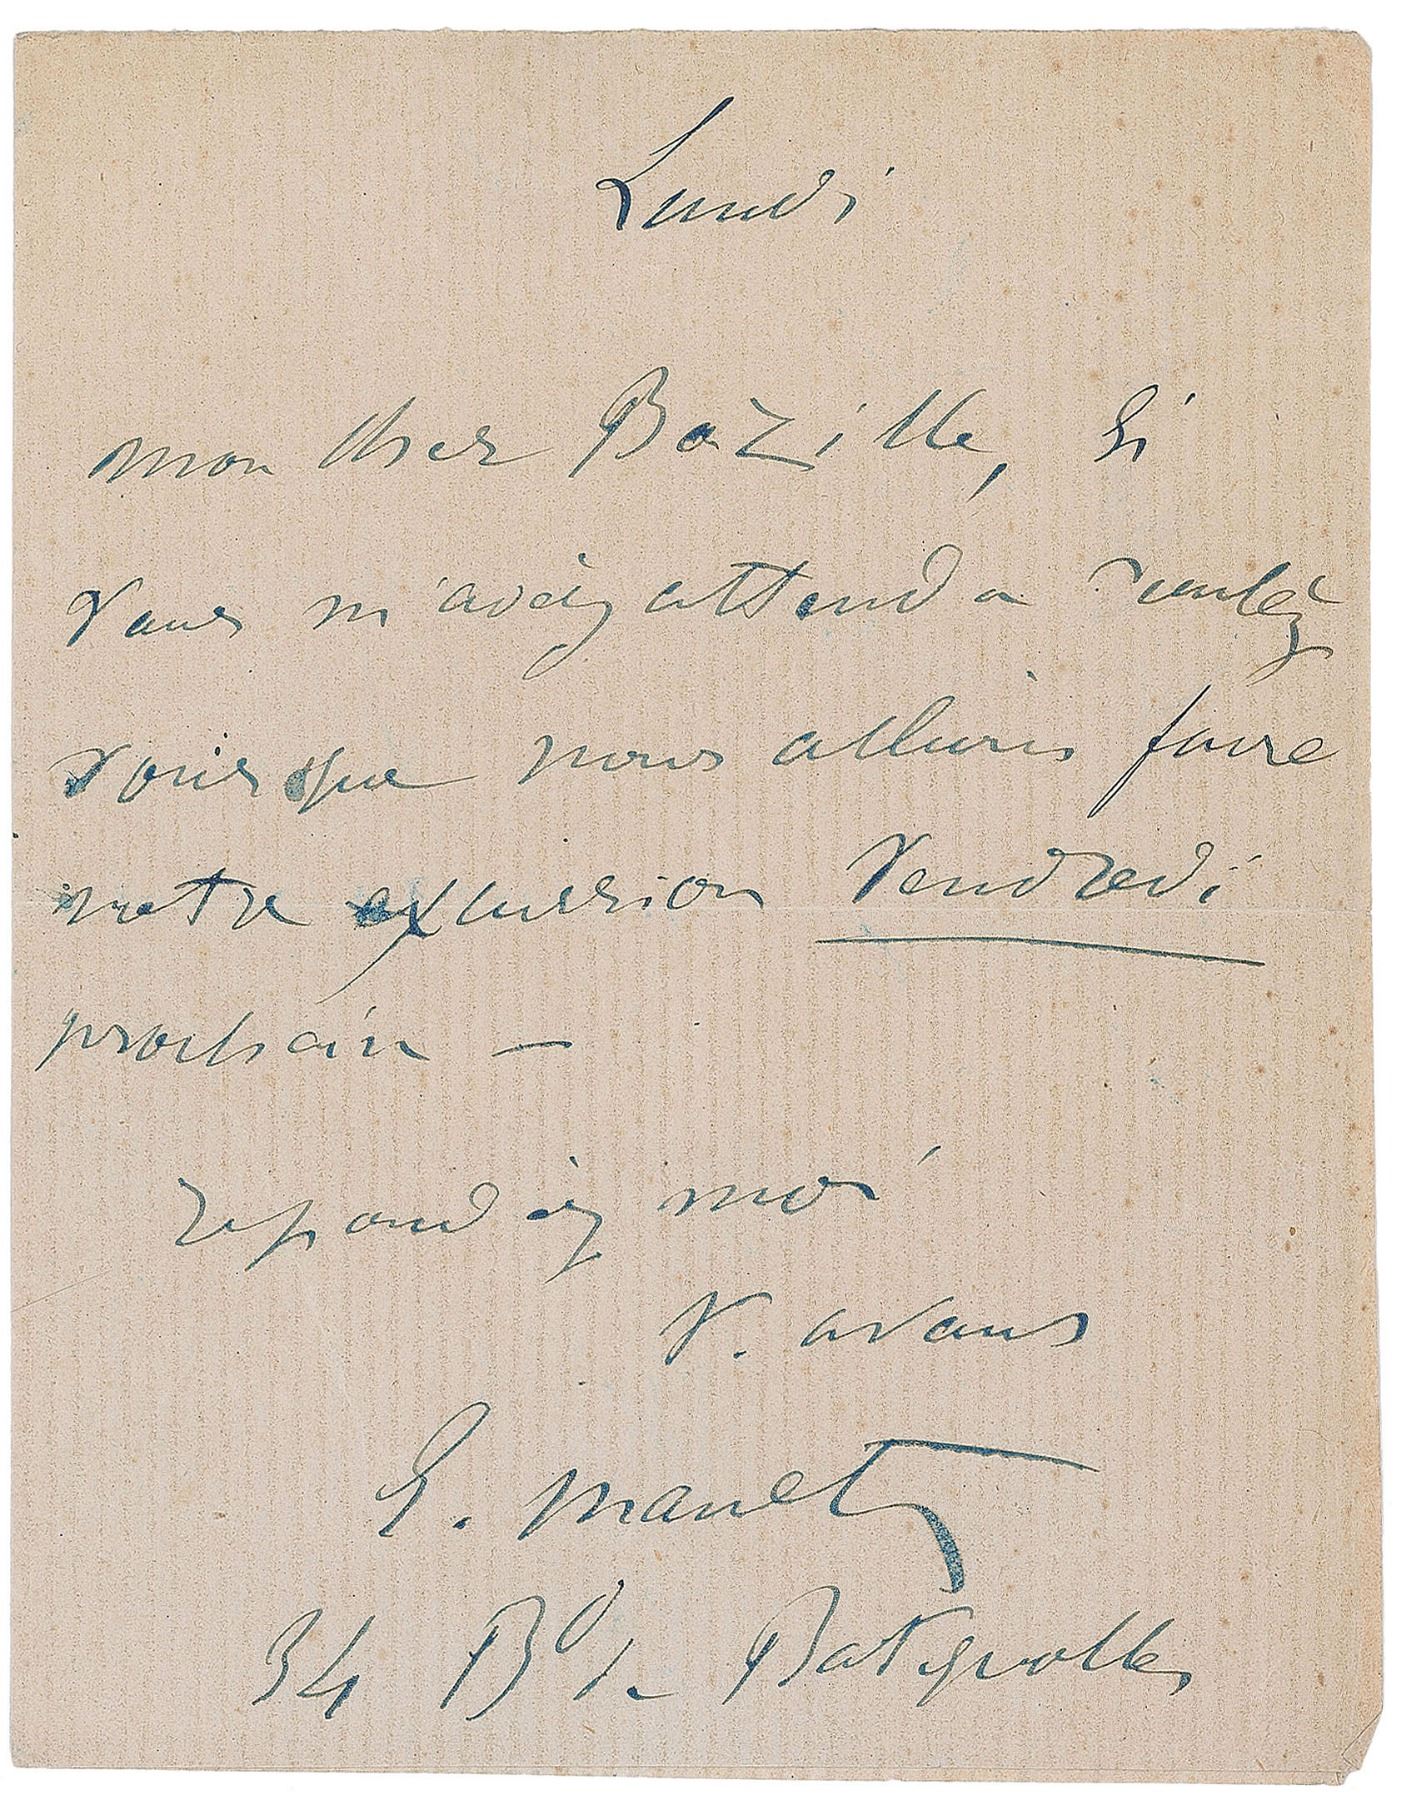 Lundi
mon cher Bazille, si
vous m'avez attendu voulez
vous que nous allions faire
notre excursion Vendredi
prochain —
repondez moi
V. avous
E. Manet
34 Bd de Batignolles